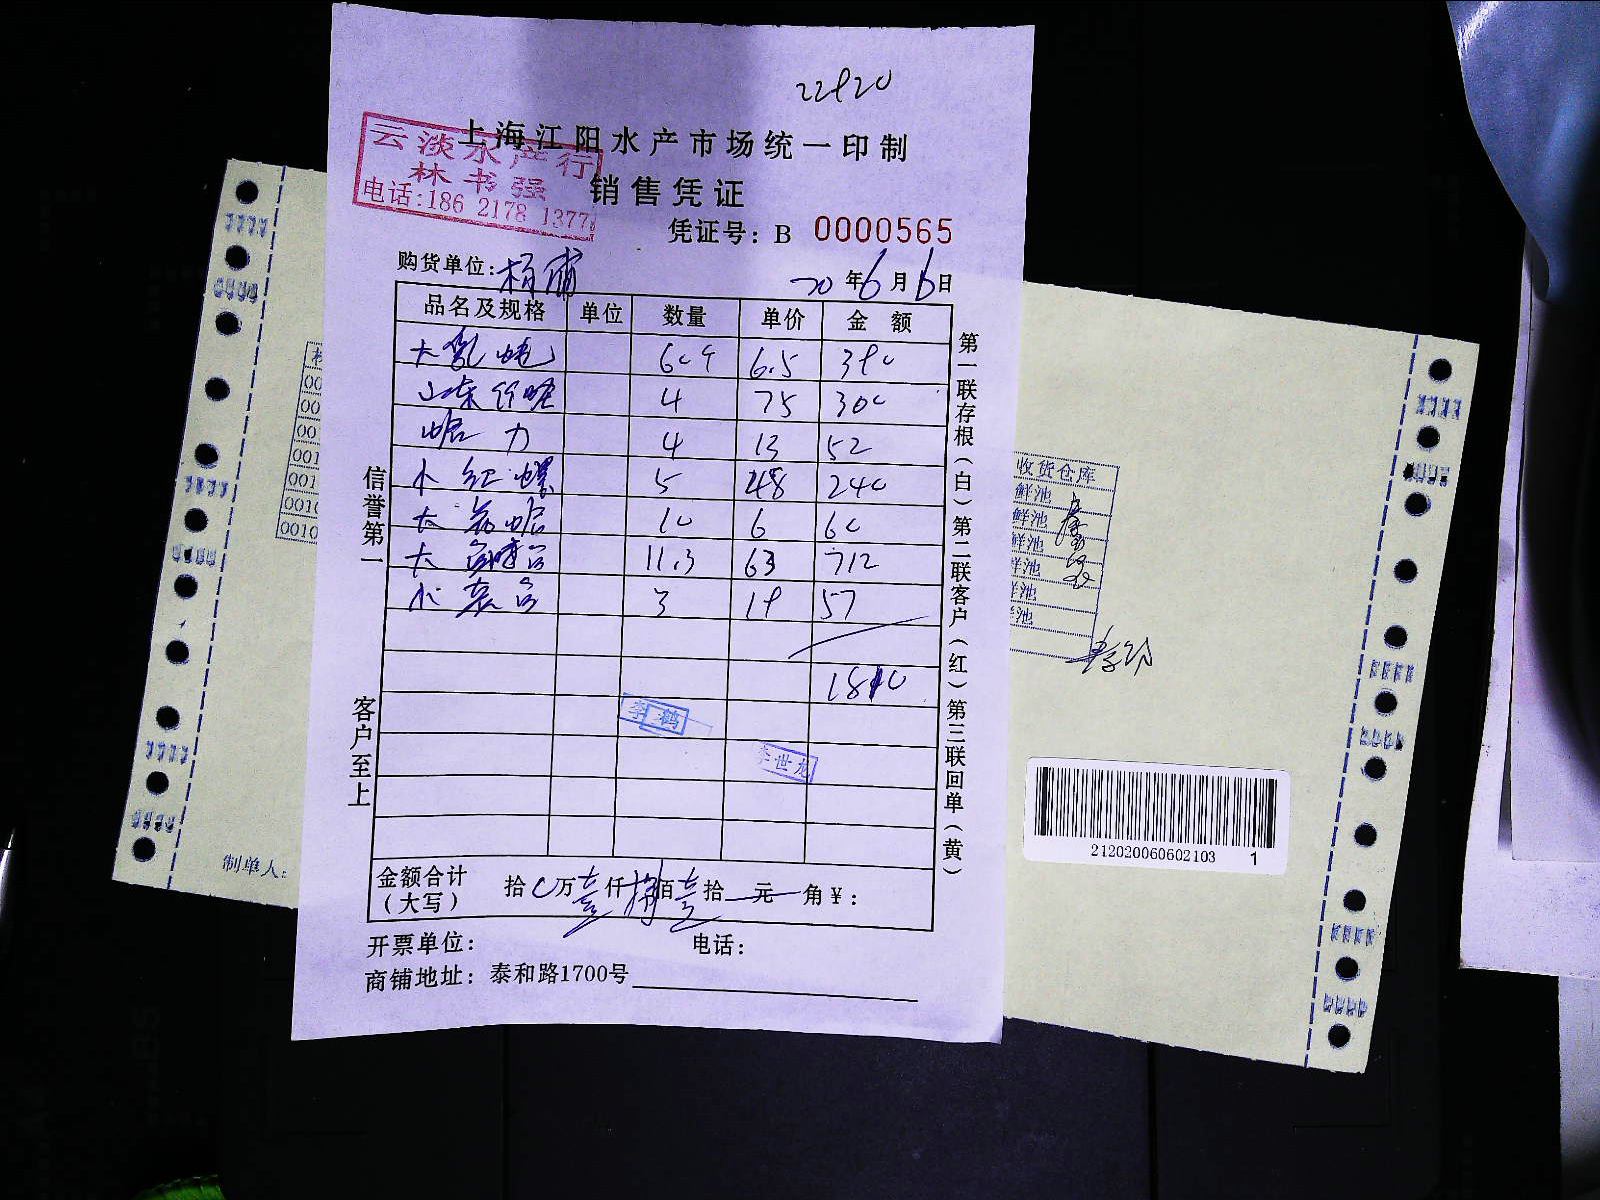 22920
上海江阳水产市场统一印制
云淡水产行
林书强
电话:186 2178 1377
销售凭证
凭证号: B 0000565
购货单位: 杨浦
20年6月6日
品名及规格 单位 数量 单价 金额
大乳蚝 60个 6.5 390
山东竹蛏 4 75 300
蛤力 4 13 52
小红螺 5 48 240
大 10 6 60
大 11.3 63 712
小 3 19 57
1810
李鹤
李世龙
信誉第一
客户至上
第一联存根(白)第二联客户(红)第三联回单(黄)
金额合计(大写) 拾0万壹仟捌佰壹拾元角¥:
开票单位: 电话:
商铺地址: 泰和路1700号
00
00
00
001
001
0010
0010
制单人:
收货仓库
鲜池
鲜池
鲜池
鲜池
鲜池
池
212020060602103 1